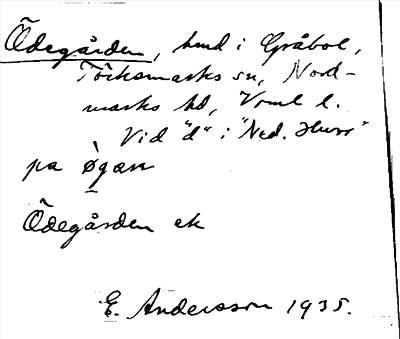 Ödegården, hmd i Gråbol,
Töcksmarks sn, Nord-
marks hd, Vrml l.
Vid "d" i "Ned. Huvs"
på ø̀gæn
Ödegården ek
E. Andersson 1935.